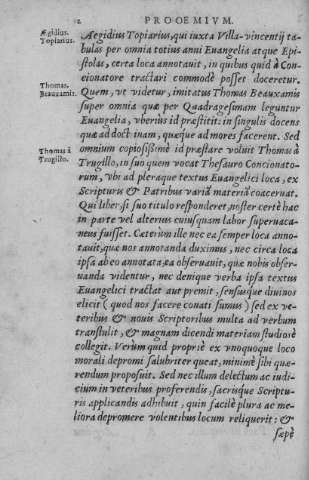 2 PROOEMIVM.
Ægidius
Topiarius.
Ægidius Topiarius, qui iuxta Villa-vincentij ta-
bulas per omnia totius anni Euangelia atque Epi-
stolas, certa loca annotauit, in quibus quid à Con-
cionatore tractari commodè posset doceretur.
Thomas
Beauxamis.
Quem, vt videtur, imitatus Thomas Beauxamis
super omnia quæ per Quadragesimam leguntur
Euangelia, vberius id præstitit: in singulis docens
quæ ad doctrinam, quæque ad mores facerent. Sed
Thomas à
Trugillo.
omnium copiosissimè id præstare voluit Thomas à
Trugillo, in suo quem vocat Thesauro Concionato-
rum, vbi ad pleraque textus Euangelici loca, ex
Scripturis & Patribus varia materia coaceruat.
Qui liber, si suo titulo responderet, noster certè hac
in parte vel alterius cuiusquam labor superuaca-
neus fuisset. Cæterùm ille nec ea semper loca anno-
tauit, quæ nos annotanda duximus, nec circa loca
ipsa ab eo annotata, ea obseruauit, quæ nobis obser-
uanda videntur, nec denique verba ipsa textus
Euangelici tractat aut premit, sensusque diuinos
elicit (quod nos facere conati sumus) sed ex ve-
teribus & nouis Scriptoribus multa ad verbum
transtulit, & magnam dicendi materiam studiosè
collegit. Verùm quid propriè ex vnoquoque loco
morali depromi salubriter queat, minimè sibi quæ-
rendum proposuit. Sed nec illum delectum ac iudi-
cium in veteribus proferendis, sacrisque Scriptu-
ris applicandis adhibuit, quin facilè plura ac me-
liora depromere volentibus locum reliquerit: &
sæpè